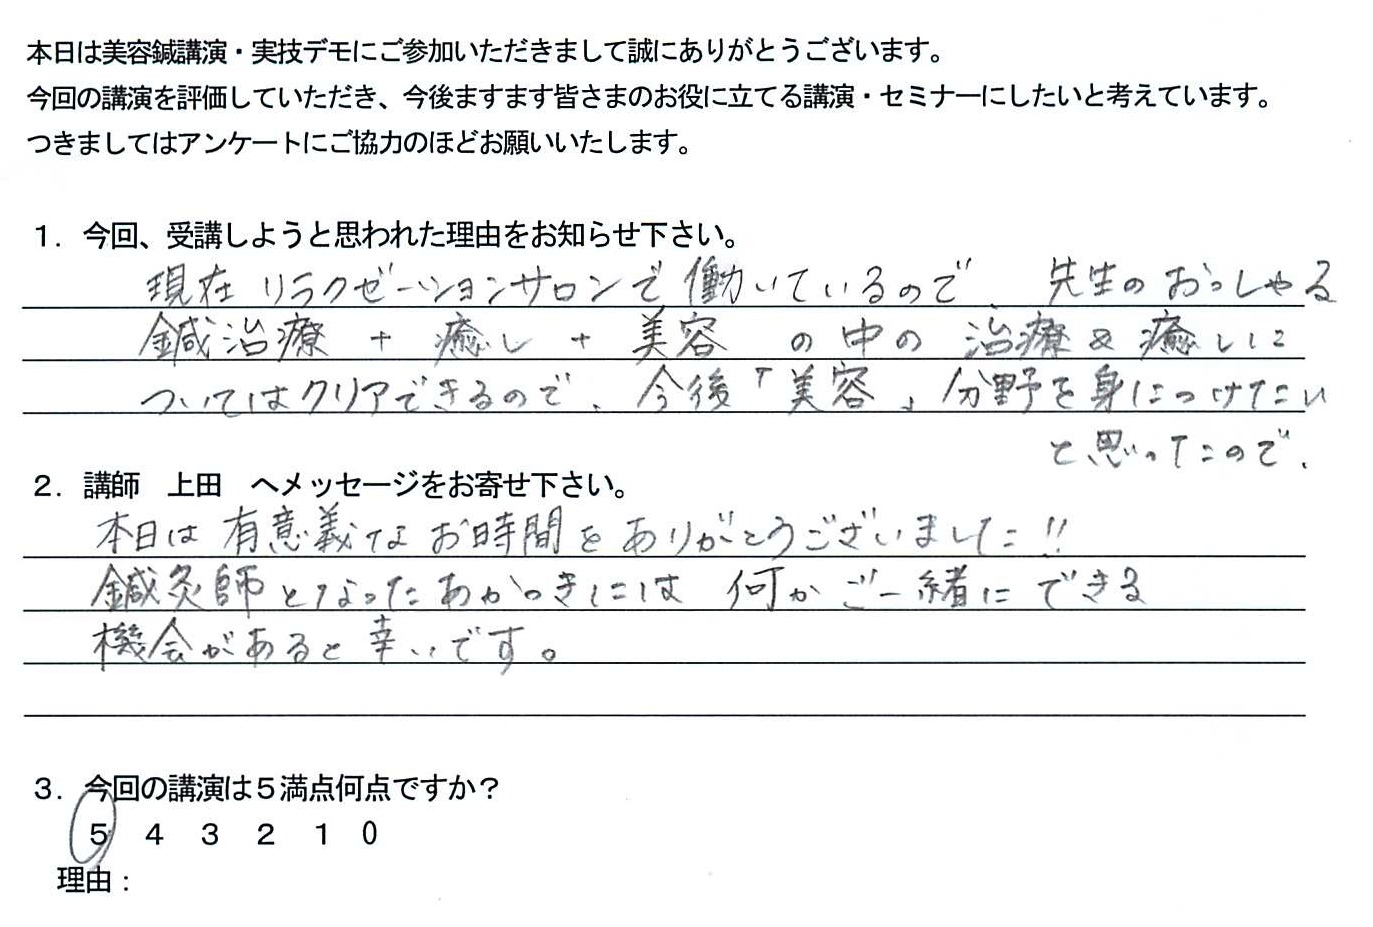 本日は美容鍼講演・実技デモにご参加いただきまして誠にありがとうございます。
今回の講演を評価していただき、今後ますます皆さまのお役に立てる講演・セミナーにしたいと考えています。
つきましてはアンケートにご協力のほどお願いいたします。
１．今回、受講しようと思われた理由をお知らせ下さい。
現在リラクゼーションサロンで働いているので、先生のおっしゃる
鍼治療 + 癒し + 美容 の中の 治療&癒しに
ついてはクリアできるので、今後「美容」分野を身につけたい
と思ったので、
２．講師　上田　へメッセージをお寄せ下さい。
本日は有意義なお時間をありがとうございました!!
鍼灸師となったあかつきには 何かご一緒にできる
機会があると幸いです。
３．今回の講演は５満点何点ですか？
5 4 3 2 1 0
理由：